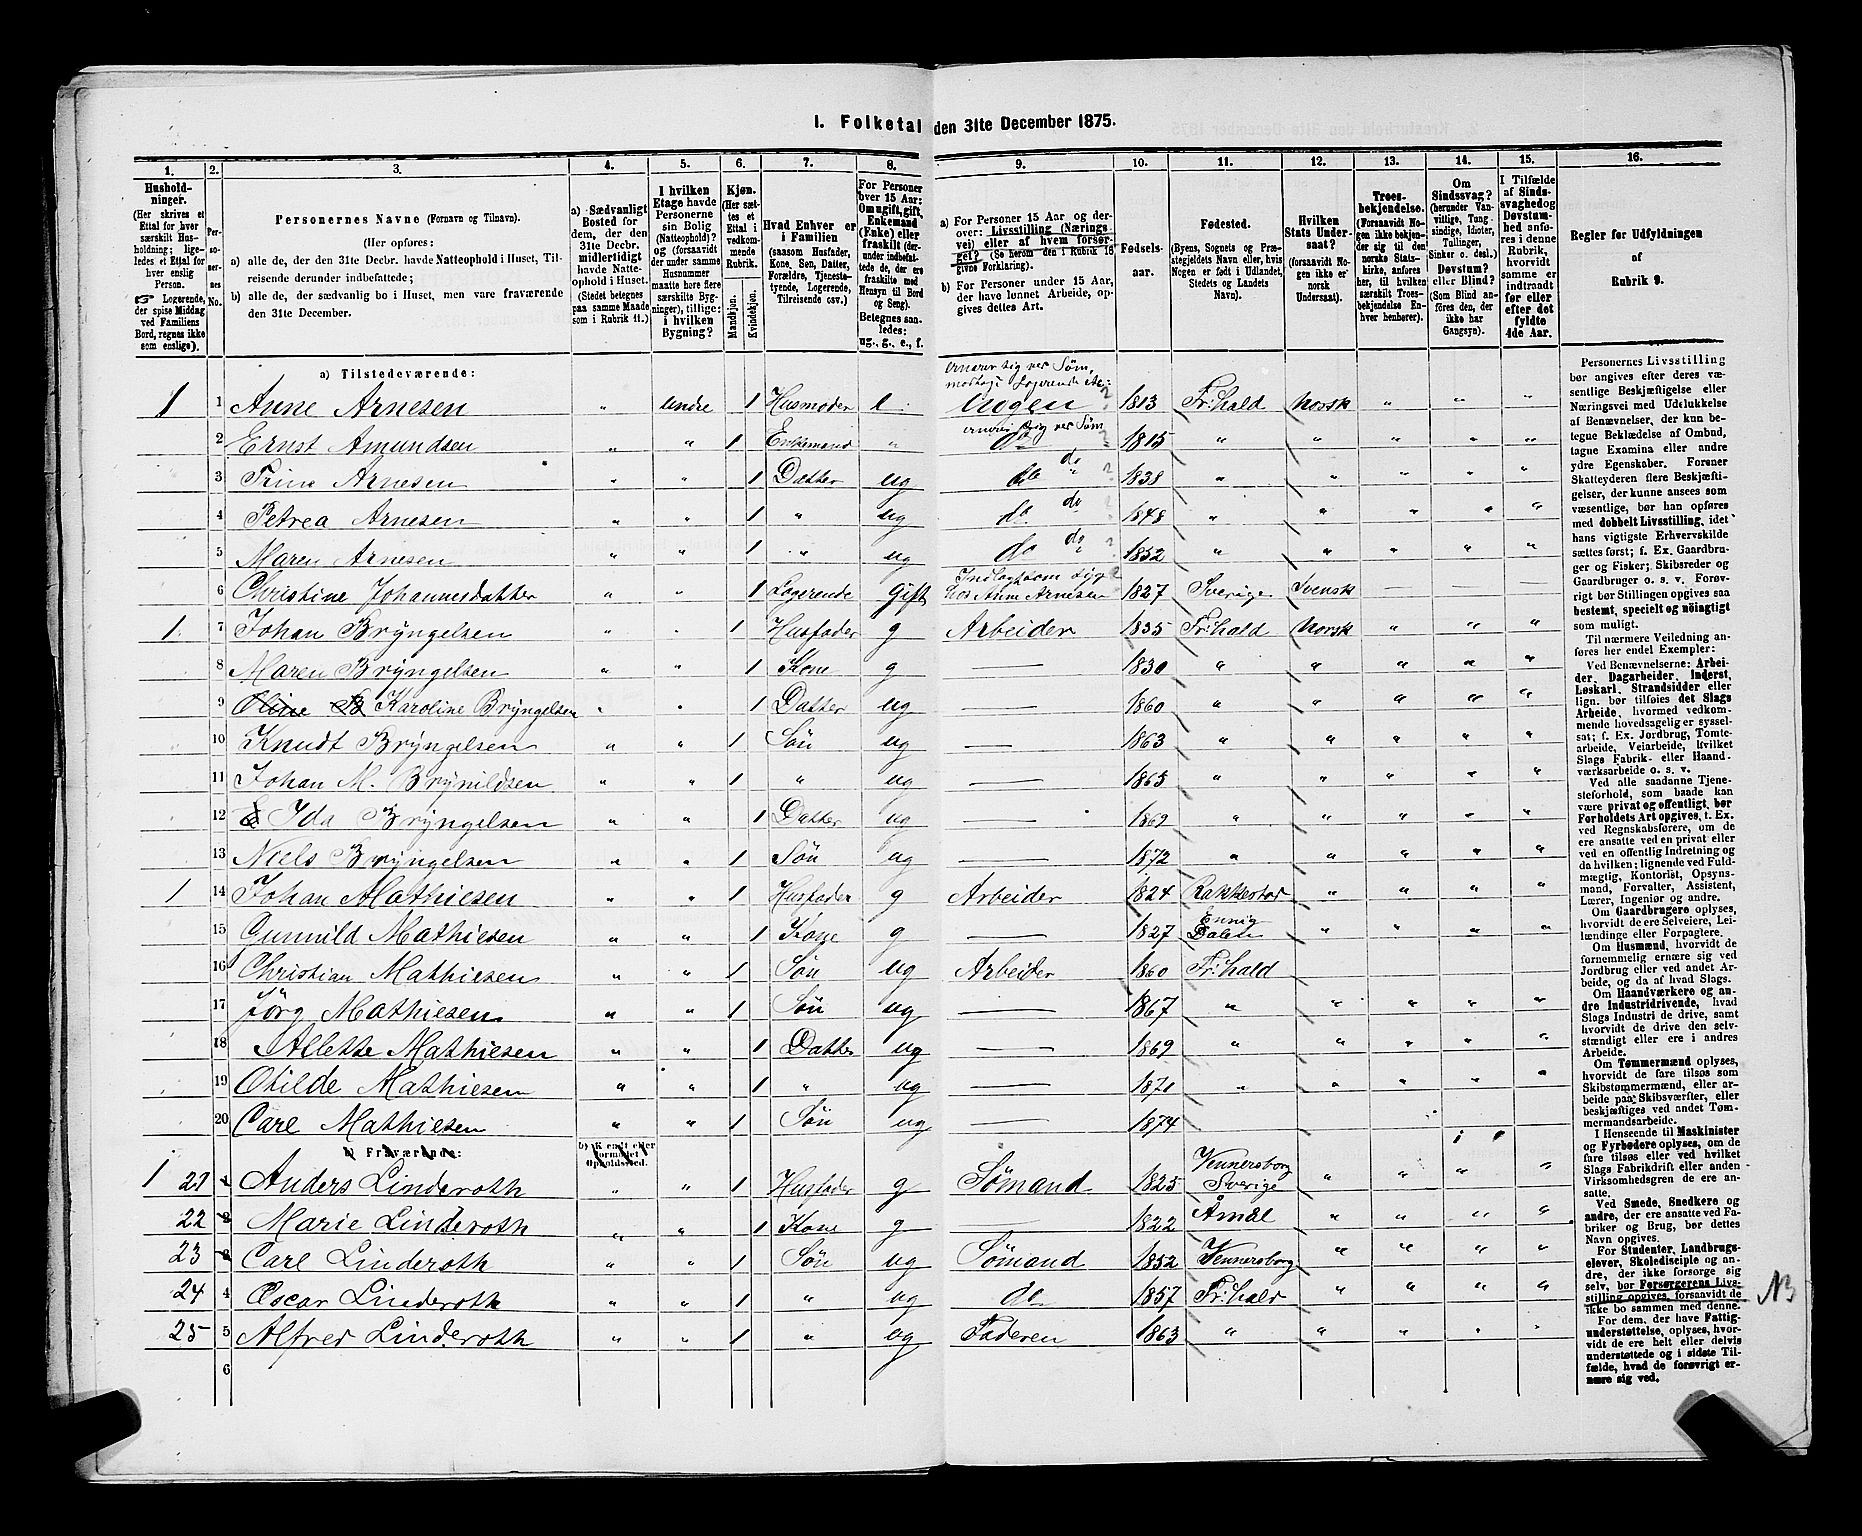 I. Folketal den 31te December 1875.
1. 2. 3. 4. 5. 6. 7. 8. 9. 10. 11. 12. 13. 14. 15. 16.
Husholdninger. (Her skrives et Ettal for hver særskilt Husholdning; ligeledes et Ettal for hver enslig Person. Logerende, der spise Middag ved Familiens Bord, regnes ikke som enslige).
Personernes No.
Personernes Navne (Fornavn og Tilnavn).
(Her opføres:
a) alle de, der den 31te Decbr. havde Natteophold i Huset, Tilreisende derunder indbefattede;
b) alle de, der sædvanlig bo i Huset, men vare fraværende den 31te December.
a) Sædvanligt Bosted for dem, der den 31te Decbr. midlertidigt havde Natteophold i Huset. (Stedet betegnes paa samme Maade som i Rubrik 11.)
I hvilken Etage havde Personerne sin Bolig (Natteophold)? og (forsaavidt der under samme Husnummer maatte høre flere særskilte Bygninger), tillige: i hvilken Bygning?
Kjøn. (Her sættes et Ettal i vedkommende Rubrik.
Mandkjøn. Kvindekjøn.
Hvad Enhver er i Familien (saasom Husfader, Kone, Søn, Datter, Forældre, Tjenestetyende, Logerende, Tilreisende osv.)
For Personer over 15 Aar: Om ugift, gift, Enkemand (Enke) eller fraskilt (derunder indbefattede de, der ere fraskilte med Hensyn til Bord og Seng). Betegnes saaledes: ug., g., e., f.
a) For Personer 15 Aar og derover: Livsstilling (Næringsvei) eller af hvem forsørget? (Se herom den i Rubrik 16 givne Forklaring).
b) For Personer under 15 Aar, der have lønnet Arbeide, opgives dettes Art.
Fødselsaar.
Fødested. (Byens, Sognets og Præstegjeldets Navn eller, hvis Nogen er født i Udlandet, Stedets og Landets Navn).
Hvilken Stats Undersaat? (forsaavidt Nogen ikke er norsk Undersaat).
Troesbekjendelse. (Forsaavidt Nogen ikke bekjender sig til den norske Statskirke, anføres her, til hvilken særskilt Troesbekjendelse Enhver henhører).
Om Sindssvag? (herunder Vanvittige, Tungsindige, Idioter, Tullinger, Sinker o. desl.) Døvstum? eller Blind? (Som Blind anføres den, der ikke har Gangsyn).
I Tilfælde af Sindssvaghed og Døvstumhed anføres i denne Rubrik, hvorvidt samme er indtraadt før eller efter det fyldte 4de Aar.
Regler for Udfyldningen
af
Rubrik 9.
a) Tilstedeværende:
1 1 Anne Arnesen " Undre 1 Husmoder e. 1813 Fr:hald Norsk " " "
2 Ernst Amundsen " " 1 Enkemand " do 1815 " " " " "
3 Trine Arnesen " " 1 Datter ug do do 1838 " " " " "
4 Petrea Arnesen " " 1 " ug do do 1848 " " " " "
5 Maren Arnesen " " 1 " ug do do 1852 " " " " "
6 Christine Johannesdatter " " 1 Logerende Gift hos Anne Arnesen 1827 Sverige Svensk
1 7 Johan Bryngelsen " " 1 Husfader g Arbeider 1835 Fr:hald Norsk " " "
8 Maren Bryngelsen " " 1 Kone g — 1830 " " " " "
9 Oline B Karoline Bryngelsen " " 1 Datter ug — 1860 " " " " "
10 Knudt Bryngelsen " " 1 Søn ug — 1863 " " " " "
11 Johan M. Brynildsen " " 1 " ug — 1865 " " " " "
12 Ida Bryngelsen " " 1 Datter ug — 1869 " " " " "
13 Niels Bryngelsen " " 1 Søn ug — 1872 " " " " "
1 14 Johan Mathiesen " " 1 Husfader g Arbeider 1824 Rakkestad " " " "
15 Gunnild Mathiesen " " 1 Kone g — 1827 Ennig Dalen " " " "
16 Christian Mathiesen " " 1 Søn ug Arbeider 1860 Fr:hald
17 Jörg Mathiesen " " 1 Søn ug — 1867 " " " " "
18 Alette Mathiesen " " 1 Datter ug — 1869 " " " " "
19 Otilde Mathiesen " " 1 " ug — 1871 " " " " "
20 Carl Mathiesen " " 1 Søn ug — 1874
b) Fraværende: b) Kjendt eller formodet Opholdssted.
1 21 1 Anders Linderoth " " 1 Husfader g Sømand 1825 Vennersborg Sverige " " " "
22 2 Marie Linderoth " " 1 Kone g 1822 Åmål " " " "
23 3 Carl Linderoth " " 1 Søn ug Sömand 1852 Vennersborg " " " "
24 4 Oscar Linderoth " " 1 " ug do 1857 Fr:hald " " " "
25 5 Alfred Linderoth " " 1 " ug Faderen 1863 " " " " "
6
Personernes Livsstilling
bør angives efter deres væ-
sentlige Beskjæftigelse eller
Næringsvei med Udelukkelse
af Benævnelser, der kun be-
tegne Beklædelse af Ombud,
tagne Examina eller andre
ydre Egenskaber. Forener
Skatteyderen flere Beskjæfti-
gelser, der kunne ansees som
væsentlige, bør han opføres
med dobbelt Livsstilling, idet
hans vigtigste Erhvervskilde
sættes først; f. Ex. Gaardbru-
ger og Fisker; Skibsreder og
Gaardbruger o. s. v. Forøv-
rigt bør Stillingen opgives saa
bestemt, specielt og nöiagtigt
som muligt.
Til nærmere Veiledning an-
føres her endel Exempler:
Ved Benævnelserne: Arbei-
der, Dagarbeider, Inderst,
Løskarl, Strandsidder eller
lign. bør tilføies det Slags
Arbeide, hvormed vedkom-
mende hovedsagelig er syssel-
sat; f. Ex. Jordbrug, Tomte-
arbeide, Veiarbeide, hvilket
Slags Fabrik- eller Haand-
værksarbeide o. s. v.
Ved alle saadanne Tjene-
steforhold, som baade kan
være privat og offentligt, bør
Forholdets Art opgives, f. Ex.
ved Regnskabsførere, om de
ere ansatte ved en privat eller
ved en offentlig Indretning og
da hvilken; lignende ved Fuld-
mægtig, Kontorist, Opsyns-
mand, Forvalter, Assistent,
Lærer, Ingeniør og andre.
Om Gaardbrugere oplyses,
hvorvidt de ere Selveiere, Lei-
lændinge eller Forpagtere.
Om Husmænd, hvorvidt de
fornemmelig ernære sig ved
Jordbrug eller ved andet Ar-
beide, og da af hvad Slags.
Om Haandværkere og an-
dre Industridrivende, hvad
Slags Industri de drive, samt
hvorvidt de drive den selv-
stændigt eller ere i andres
Arbeide.
Om Tømmermænd oplyses,
hvorvidt de fare tilsøs som
Skibstømmermænd, eller ar-
beide paa Skibsværfter, eller
beskjæftiges ved andet Tøm-
mermandsarbeide.
I Henseende til Maskinister
og Fyrbødere oplyses, om de
fare tilsøs eller ved hvilket
Slags Fabrikdrift eller anden
Virksomhedsgren de ere an-
satte.
Ved Smede, Snedkere og
andre, der ere ansatte ved Fa-
briker og Brug, bør dettes
Navn opgives.
For Studenter, Landbrugs-
elever, Skoledisciple og an-
dre, der ikke forsørge sig
selv, bør Forsørgerens Livs-
stilling opgives, forsaavidt de
ikke bo sammen med denne.
For dem, der have Fattig-
understøttelse, oplyses, hvor-
vidt de ere helt eller delvis
understøttede og i sidste Til-
fælde, hvad de forøvrigt er-
nære sig ved.
NB